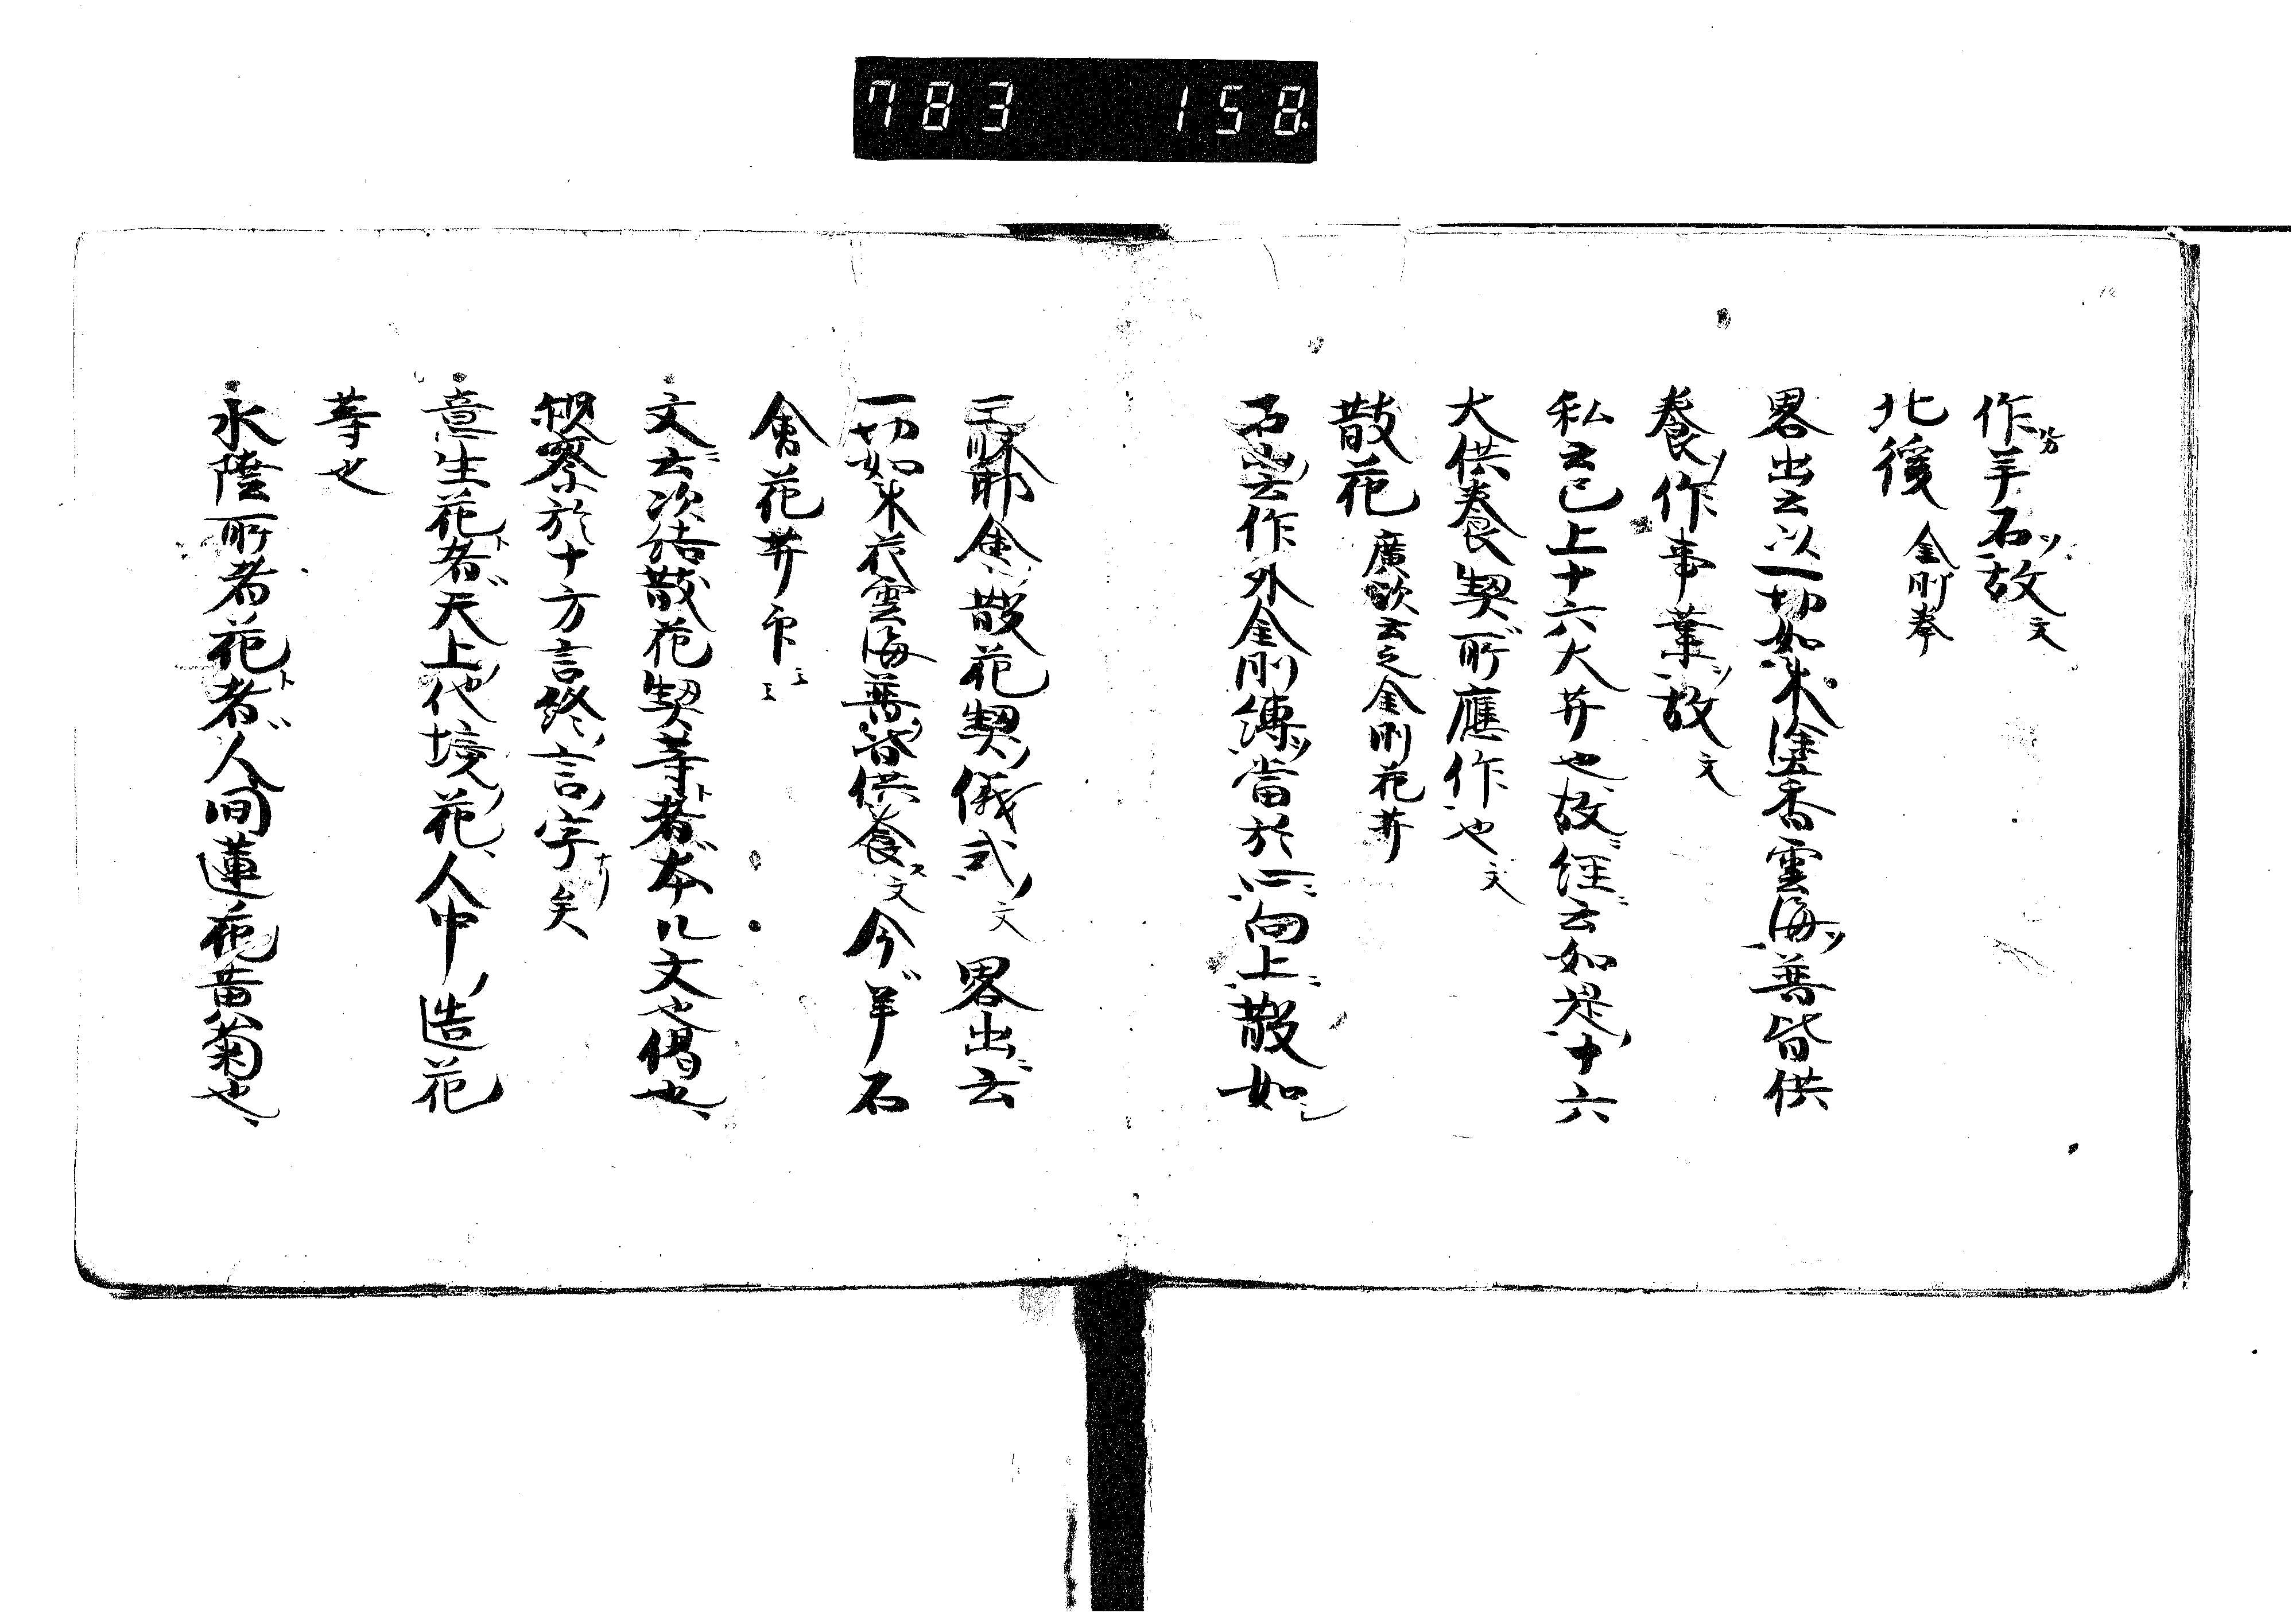 783 158
作羊石故文
北後 金剛拳
畧出云以一切如来塗香雲海普皆供
養作事業故文
私云已上十六大芉也故経云如是十六
大供養契所應作也文
散花 廣云之金剛花芉
云作外金剛縛當於心向上散如
三昧耶會散花契儀式文 畧出云
一切如来花雲海普皆供養文今羊石
會花芉印
文云次結散花契等者本儿文也偈也
觀察於十方言終言字矣
意生花者天上他境花人中造花
等也
水陸所者花者人間蓮花黄菊也